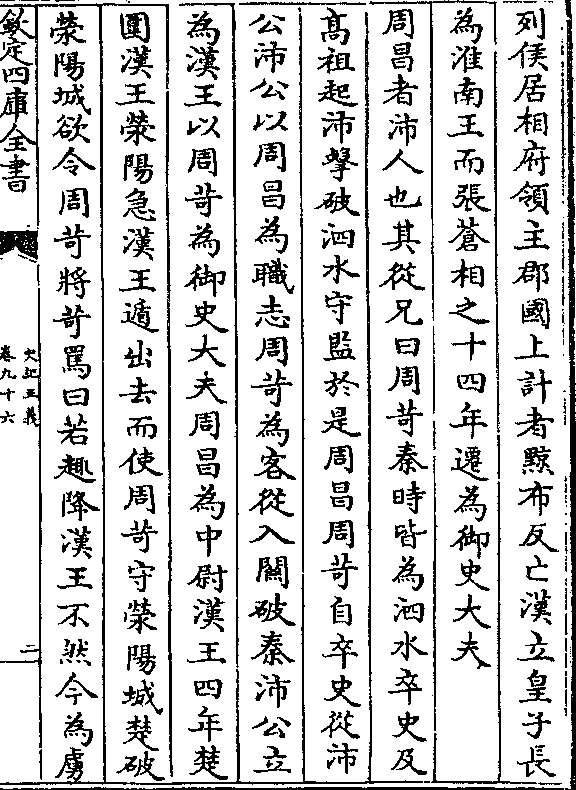 列侯居相府領主郡國上計者黥布反亡漢立皇子長
為淮南王而張蒼相之十四年遷為御史大夫
周昌者沛人也其從兄曰周苛秦時皆為泗水卒史及
髙祖起沛擊破泗水守監於是周昌周苛自卒史從沛
公沛公以周昌為職志周苛為客從入關破秦沛公立
為漢王以周苛為御史大夫周昌為中尉漢王四年楚
圍漢王滎陽急漢王遁出去而使周苛守滎陽城楚破
滎陽城欲令周苛將苛罵曰若趣降漢王不然今為虜
欽定四庫全書
史記正義
卷九十六
二